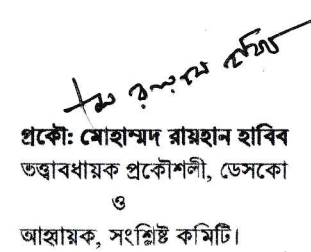 প্রকৌ: মোহাম্মদ রায়হান হাবিব
তত্ত্বাবধায়ক প্রকৌশলী, ডেসকো
ও
আহ্বায়ক, সংশ্লিষ্ট কমিটি।